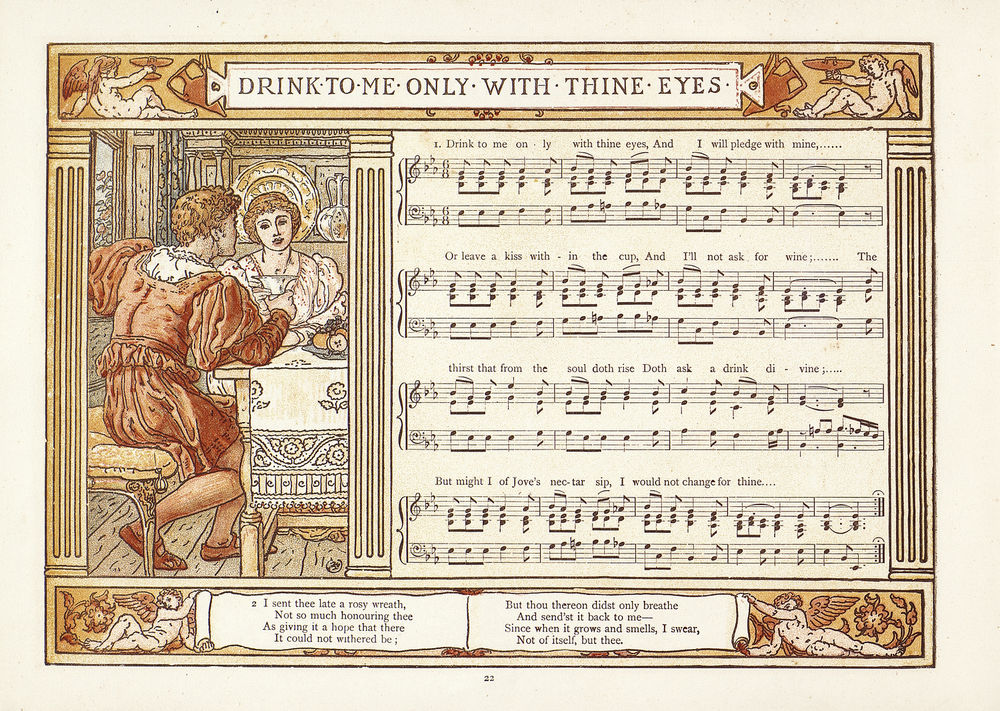 DRINK·TO·ME·ONLY·WITH·THINE·EYES·
1. Drink to me on - ly with thine eyes, And I will pledge with mine,......
Or leave a kiss with - in the cup, And I'll not ask for wine;....... The
thirst that from the soul doth rise Doth ask a drink di - vine;.....
But might I of Jove's nec-tar sip, I would not change for thine....
2 I sent thee late a rosy wreath,
Not so much honouring thee
As giving it a hope that there
It could not withered be;
But thou thereon didst only breathe
And send'st it back to me—
Since when it grows and smells, I swear,
Not of itself, but thee.
22